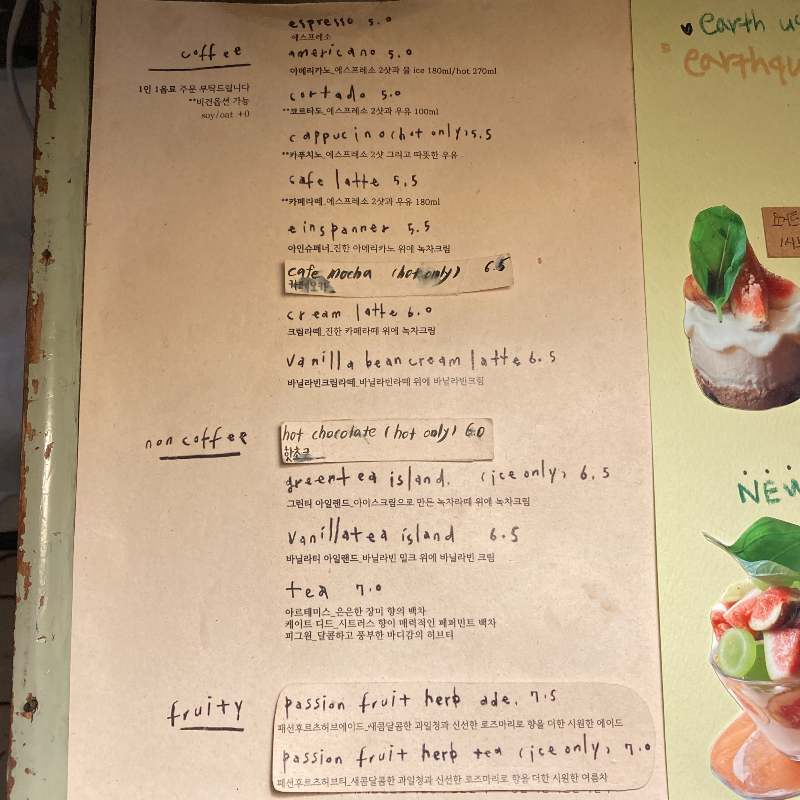 espresso 5.0
에스프레소
coffee
americano 5.0
아메리카노_에스프레소 2샷과 물 ice 180ml/hot 270ml
1인 1음료 주문 부탁드립니다
**비건옵션 가능
soy/oat +0
cortado 5.0
**코르타도_에스프레소 2샷과 우유 100ml
cappucino(hot only)5.5
**카푸치노_에스프레소 2샷 그리고 따뜻한 우유
cafe latte 5.5
**카페라떼_에스프레소 2샷과 우유 180ml
einspanner 5.5
아인슈페너_진한 아메리카노 위에 녹차크림
cafe mocha (hot only) 6.5
카페모카_
cream latte 6.0
크림라떼_진한 카페라떼 위에 녹차크림
vanilla bean cream latte 6.5
바닐라빈크림라떼_바닐라빈라떼 위에 바닐라빈크림
non coffee
hot chocolate (hot only) 6.0
핫초코_
greentea island. (ice only) 6.5
그린티 아일랜드_아이스크림으로 만든 녹차라떼 위에 녹차크림
vanillatea island 6.5
바닐라티 아일랜드_바닐라빈 밀크 위에 바닐라빈 크림
tea 7.0
아르테미스_은은한 장미 향의 백차
케이트 디드_시트러스 향이 매력적인 페퍼민트 백차
피그원_달콤하고 풍부한 바디감의 허브티
fruity
passion fruit herb ade. 7.5
패션후르츠허브에이드_새콤달콤한 과일청과 신선한 로즈마리로 향을 더한 시원한 에이드
passion fruit herb tea (ice only) 7.0
패션후르츠허브티_새콤달콤한 과일청과 신선한 로즈마리로 향을 더한 시원한 여름차
earth us
earthqu
NEW